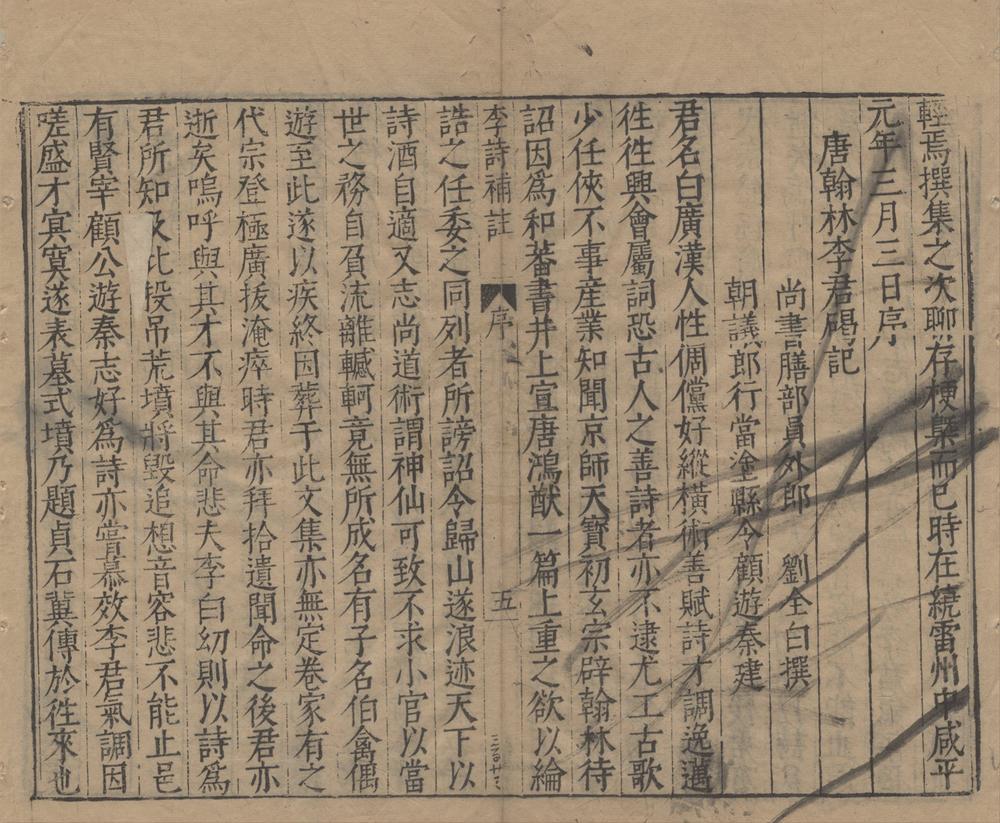 輕焉撰集之次聊存梗槩而已時在繞雷州中咸平
元年三月三日序
唐翰林李君碣記
尚書膳部員外郎 劉全白撰
朝議郎行當塗縣令顧遊秦建
君名白廣漢人性倜儻好縱橫術善賦詩才調逸邁
徃徃興會屬詞恐古人之善詩者亦不逮尤工古歌
少任俠不事産業知聞京師天寳初玄宗辟翰林待
詔因爲和蕃書并上宣唐鴻猷一篇上重之欲以綸
李詩補註 序 五
誥之任委之同列者所謗詔令歸山遂浪迹天下以
詩酒自適又志尚道術謂神仙可致不求小官以當
世之務自負流離轗軻竟無所成名有子名伯禽偶
遊至此遂以疾終因葬于此文集亦無定卷家有之
代宗登極廣拔淹瘁時君亦拜拾遺聞命之後君亦
逝矣嗚呼與其才不與其命悲夫李白㓜則以詩爲
君所知及此投吊荒墳將毀追想音容悲不能止邑
有賢宰顧公遊秦志好爲詩亦嘗慕效李君氣調因
嗟盛才寞寞遂表墓式墳乃題貞石冀傳於徃來也